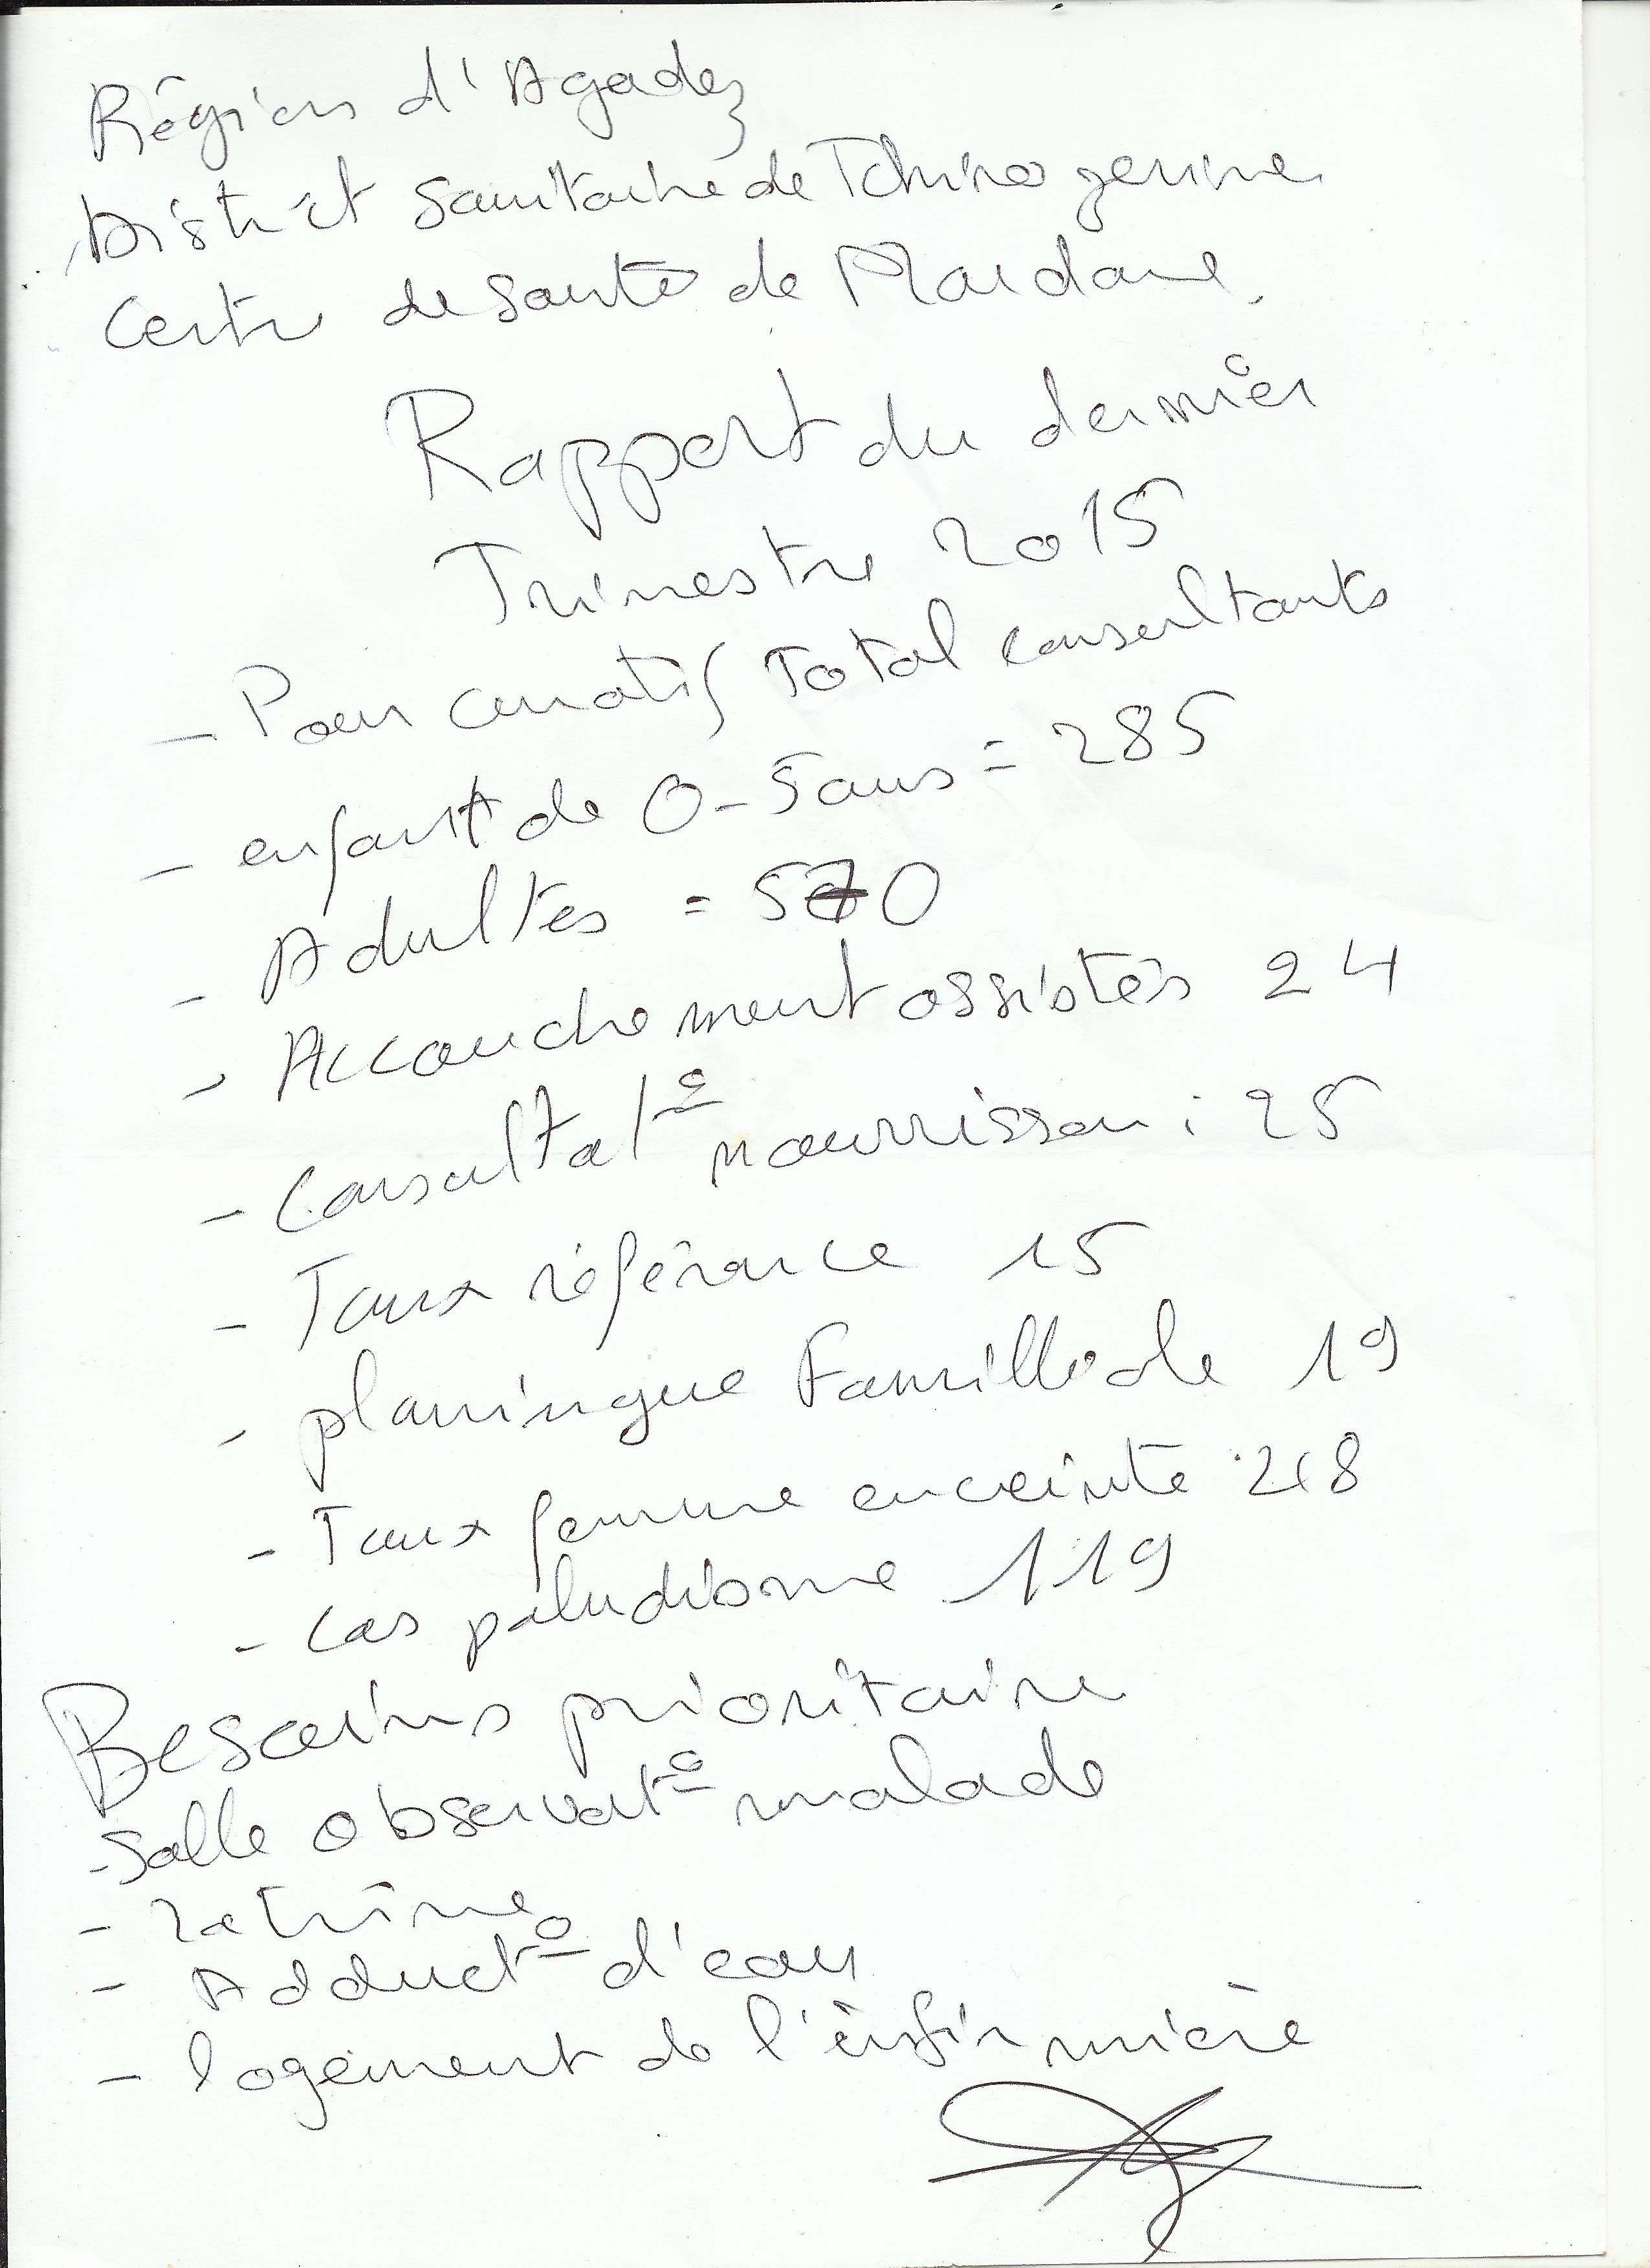 Région d'Agadez
District Sanitaire de Tchirozerine
Centre de Santé de Mardane.
Rapport du dernier
Trimestre 2015
- Pour curatif Total consultants
- enfant de 0-5 ans = 285
- Adultes = 570
- Accouchement assistés 24
- Consultat° nourrisson : 25
- Taux référance 15
- planningue Familliale 19
- Taux femme enceinte 28
- Cas paludisme 119
Besoins prioritaire
- Salle observat° malade
- Latrine
- Adduct° d'eau
- logement de l'infirmière